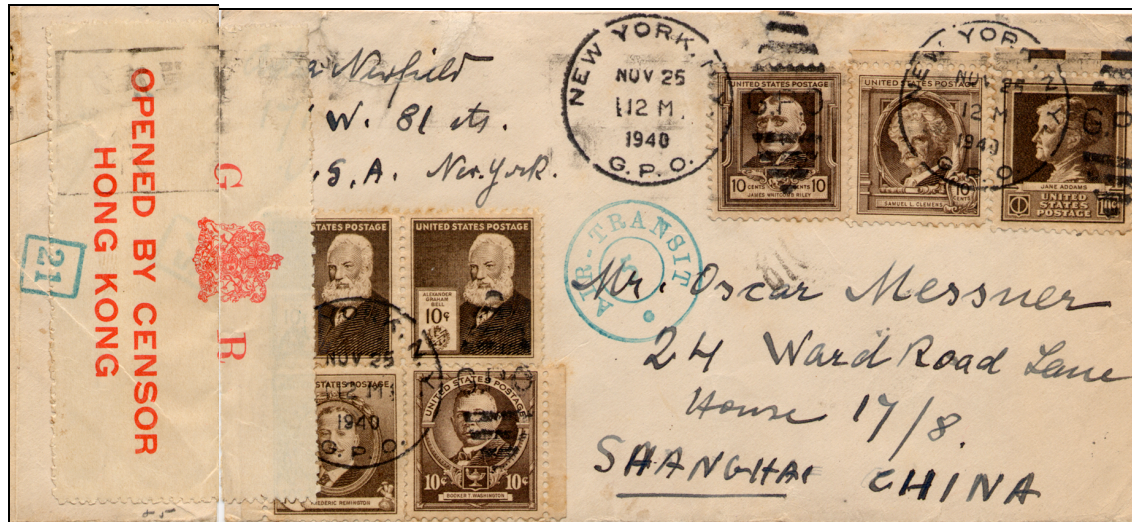 OPENED BY CENSOR
HONG KONG
21
G R
Newfield
W. 81 str.
S. A. New York.
NEW YORK, N.
NOV 25
12 M
1940
G.P.O.
UNITED STATES POSTAGE
10 CENTS CENTS 10
JAMES WHITCOMB RILEY
UNITED STATES POSTAGE
10 CENTS
SAMUEL L. CLEMENS
NEW YORK, N. Y.
NOV 25
12 M
1940
G.P.O.
JANE ADDAMS
UNITED
STATES
POSTAGE
10¢
STATES POSTAGE
UNITED STATES POSTAGE
ALEXANDER
GRAHAM
BELL
10¢
NOV 25
12 M
1940
G.P.O.
STATES POSTAGE
FREDERIC REMINGTON
UNITED STATES POSTAGE
10¢ 10¢
BOOKER T. WASHINGTON
AIR-TRANSIT
Mr. Oscar Messner
24 Ward Road Lane
House 17/8.
SHANGHAI CHINA